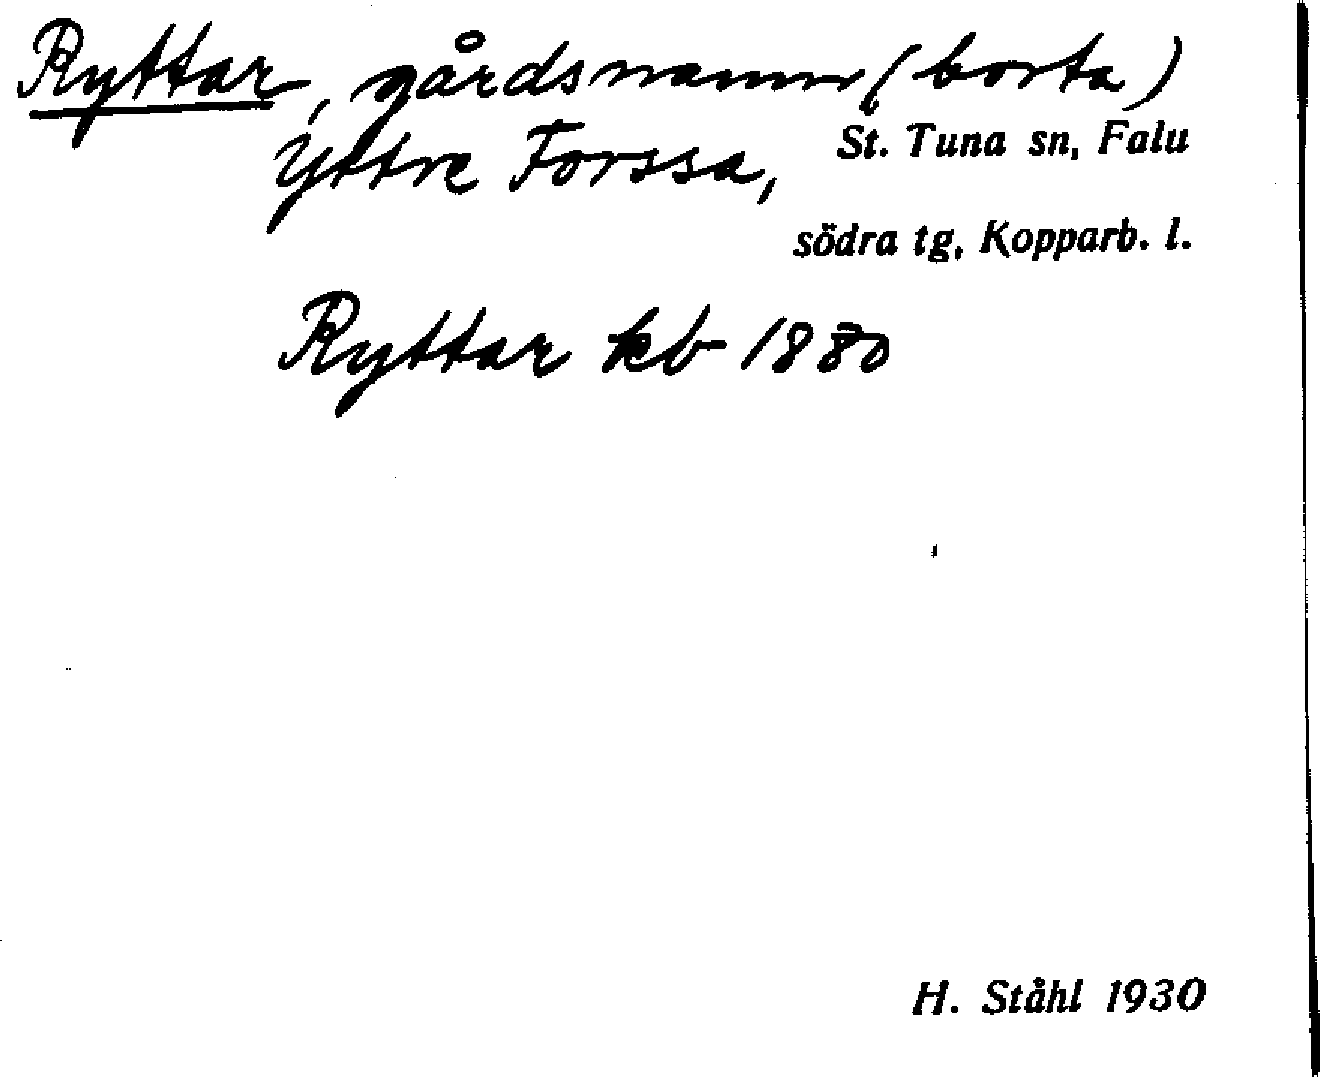 Ryttar, gårdsnamn (borta)
Yttre Forssa, St. Tuna sn, Falu
södra tg, Kopparb. l.
Ryttar kb 1880
H. Ståhl 1930